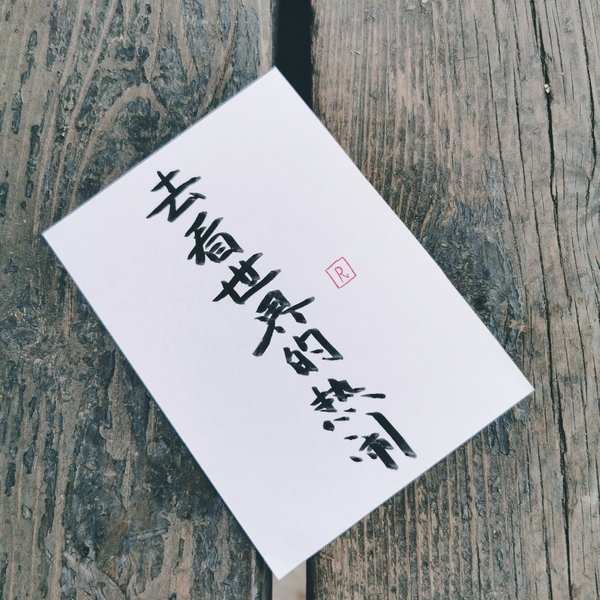 去看世界的热闹
R